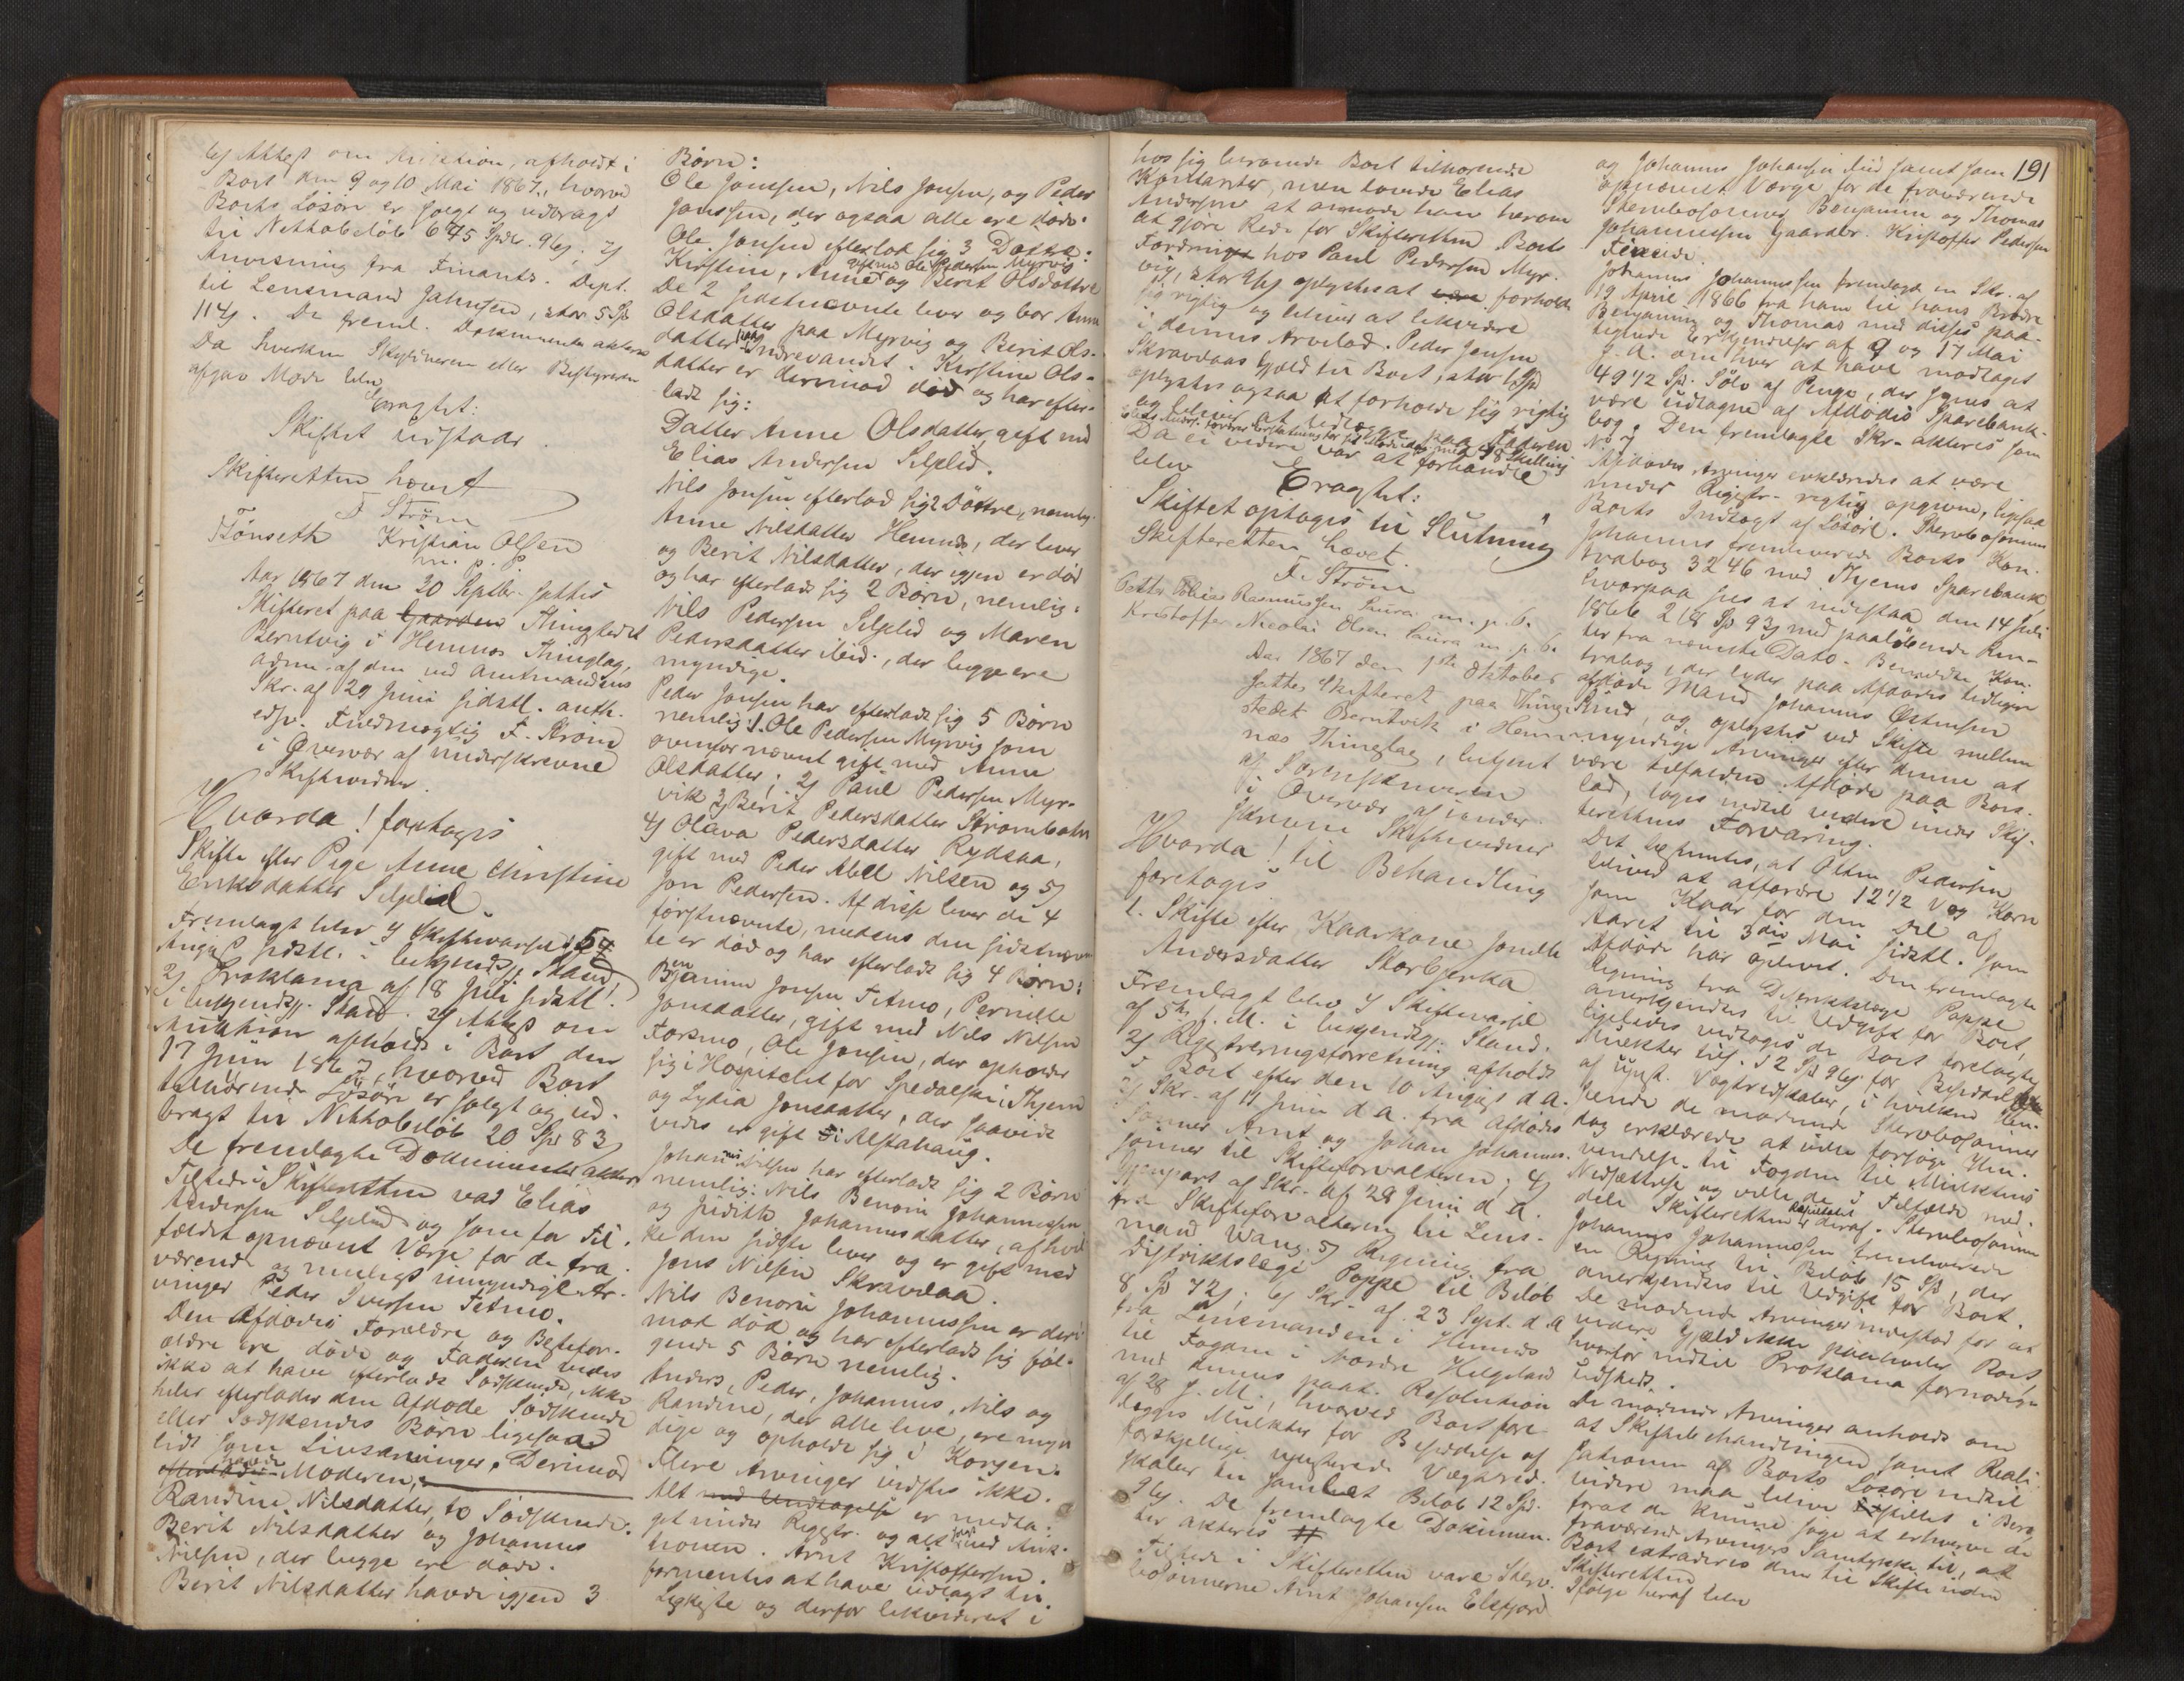 6) Attest om Auktion, afholdt i
Boet den 9 og 10 Mai 1867, hvorved
Boets Løsøre er solgt og udbragt
til Nettobeløb 645 Spdr. 96 s; 7)
Anvisning fra Finants. Dept.
til Lensmand Jahnsen, stor 5 Spd
114 s. De freml. Dokumenter akteres
Da hverken Skylderen eller Bestyreren
afgav Møde blev
Eragtet:
Skiftet udstaar.
Skifteretten hævet
F Strøm
Tønseth Kristian Olsen
m. p. P.
Aar 1867 den 30 Septbr. sattes
Skifteret paa Gaarden Thingstedet
Berntvig i Hemnes Thinglag,
adm. af den ved Amtmandens
Skr. af 29 Juni sidstl. auth.
edsv. Fuldmægtig F. Strøm
i Overvær af underskrevne
Skiftevidner.
Hvorda! foretoges
Skifte efter Pige Anne Christine
Eriksdatter Selfolid.
Fremlagt blev 1) Skiftevarsel af 5te
August sidstl. i bekjendtg. Stand
2) Proklama af 18 Juli sidstl.
i bekjendtg. Stand. 3) Attest om
Auktion afholdt i Boet den
17 Juni 1867, hvorved Boet
tilhørende Løsøre er solgt og ud-
bragt til Nettobeløb 20 Spd 83 s
De fremlagte Dokumenter akteres
Tilstede i Skifteretten var Elias
Andersen Selfolid og som for Til-
fældet opnævnt Værge for de fra-
værende og muligt umyndige Ar-
vinger Peder Iversen Tetmo.
Den Afdødes Forældre og Bedstefor-
ældre ere døde og Faderen vides
ikke at have efterladt Sødskende, ikke
heller efterlader den Afdøde Sødskende
eller Sødskendes Børn ligesaa-
lidt som Livsarvinger. Derimod
efterlader havde Moderen,
Randine Nilsdatter, to Sødskende:
Berit Nilsdatter og Johannes
Nilsen, der begge ere døde.
Berit Nilsdatter havde igjen 3
Børn:
Ole Jonsen, Nils Jonsen, og Peder
Jonsen, der ogsaa alle ere døde.
Ole Jonsen efterlod sig 3 Døttre:
Kirstine, Anne gift med Ole Pedersen Myrvig og Berit Olsdøttre
De 2 sidstnævnte lever og bor Anne
Olsdatter paa Myrvig og Berit Ols-
datter paa Indrevandet. Kirstine Ols-
datter er derimod død og har efter-
ladt sig:
Datter Anne Olsdatter, gift med
Elias Andersen Selfolid.
Nils Jonsen efterlod sig 2 Døttre, nemlig
Anne Nilsdatter Hemnes, der lever
og Berit Nilsdatter, der igjen er død
og har efterladt sig 2 Børn, nemlig:
Nils Pedersen Selfolid og Maren
Pedersdatter ibid., der begge ere
myndige.
Peder Jonsen har efterladt sig 5 Børn
nemlig: 1. Ole Pedersen Myrvig som
ovenfor nævnt gift med Anne
Olsdatter; 2) Paul Pedersen Myr-
vik 3) Berit Pedersdatter Strømbotn
4) Olava Pedersdatter Rydsaa,
gift med Peder Abel Nilsen og 5)
Jon Pedersen. Af disse lever de 4
førstnævnte, medens den sidstnævn-
te er død og har efterladt sig 4 Børn:
Benjamin Jonsen Tetmo, Pernille
Jonsdatter, gift med Nils Nilsen
Forsmo, Ole Jonsen, der opholder
sig i Hospitalet for Spedalske i Thjem
og Lydia Jonsdatter, der saavidt
vides er gift i Alstahaug.
Johannes Nilsen har efterladt sig 2 Børn
nemlig: Nils Benoni Johannessen
og Judith Johannesdatter, af hvil-
ke den sidste lever og er gift med
Jens Nilsen Skravlaa.
Nils Benoni Johannessen er deri-
mod død og har efterladt sig føl-
gende 5 Børn nemlig.
Anders, Peder, Johannes, Nils og
Randine, der alle leve, ere myn-
dige og opholde sig i Korgen.
Flere Arvinger vidstes ikke.
Alt med Undtagelse er medta-
get under Registr. og alt solgt ved Auk-
tionen. Arnt Kristoffersen
formentes at have udlagt til
Ligkiste og derfor likvideret i
hos sig beroende Boet tilhørende
Kontanter, men lovede Elias
Andersen at anmode ham herom
at gjøre Rede for Skifteretten. Boets
Fordringer hos Paul Pedersen Myr-
vig, stor 96 s oplystes at være forholde
sig rigtig og bliver at likvidere
i dennes Arvelod. Peder Jensen
Skravlaas Gjæld til Boet, stor 1 Spd
oplystes ogsaa at forholde sig rigtig
og bliver at udlægge paa Faderen
Elias Anders. fordrer Erstatning for sit Møde idag med 48 Skilling
Da ei videre var at forhandle
blev
Eragtet:
Skiftet optages til Slutning
Skifteretten hævet.
F. Strøm
Petter Tobias Rasmussen Luura m. p. P.
Kristoffer Nicolai Olsen Luura m. p. P.
Aar 1867 den 1ste Oktober
sattes Skifteret paa Thing-
stedet Berntvik i Hem-
næs Thinglag, betjent
af Sorenskriveren
i Overvær af under-
skrevne Skiftevidner
Hvorda! til Behandling
foretoges
1. Skifte efter Kaarkone Jonette
Andersdatter Storbjerka
Fremlagt blev 1) Skiftevarsel
af 5te f. M. i bekjendtgj. Stand.
2) Registreringsforretning afholdt
i Boet efter den 10 August d A.
3) Skr. af 11 Juni d A. fra Afdødes
Sønner Arnt og Johan Johannes-
sønner til Skifteforvalteren; 4)
Gjenpart af Skr. af 28 Juni d A.
fra Skifteforvalteren til Lens-
mand Wang. 5) Regning fra
Distriktslæge Poppe til Beløb
8 Sp 72 s; 6) Skr. af 23 Sept. d. A
fra Lensmanden i Hemnæs
til Fogden i Nordre Helgeland
med dennes paat. Resolution
af 28 f. M., hvorved Boet fore-
lægges Mulkter for Besiddelse af
forskjellige ujusterede Vægtred-
skaber til samlet Beløb 12 Spd.
96 s. De fremlagte Dokumen-
ter akteres #
Tilstede i Skifteretten vare Sterv-
bosønnerne Arnt Johansen Elsfjord
191
og Johannes Johansen ibid samt som
opnævnt Værge for de fraværende
Stervbosønner Benjamin og Thomas
Johannessen Gaardbr. Kristoffer Pedersen
Finneide.
Johannes Johannessen fremlagde en Skr. af
19 April 1866 fra ham til hans Brødre
Benjamin og Thomas med disses paa-
tegnede Erkjendelser af 9 og 17 Mai
s. A. om hver at have modtaget
49 1/2 Spd. Sølv af Penge, der synes at
være udtagne af Afdødes Sparebank-
bog. Den fremlagte Skr. akteres som
No 7
Afdødes Arvinger erklæredes at være
under Registr. rigtig opgivne, ligesaa
Boets Indtægt af Løsøre. Stervbosønnen
Johannes fremleverede Boets Kon-
trabog 3246 med Thjems Sparebank,
hvorpaa sees at indestaa den 14 Juli
1866 218 Sp 93 s med paaløbende Ren-
ter fra nævnte Dato. Bemeldte Kon-
trabog, der lyder paa Afdødes tidligere
afdøde Mand Johannes Østensen
Rind, og oplystes ved Skifte mellem
myndige Arvinger efter denne at
være tilfalden Afdøde paa Bors-
lod, toges indtil videre under Skif-
terettens Forvaring.
Det bekjendtes, at Olten Pedersen
bliver at affordre 12 1/2 Vog Korn
som Kaar for den Del af
Aaret til 3die Mai sidstl. som
Afdøde har oplevet. Den fremlagte
Regning fra Distriktslæge Poppe
anerkjendtes til Udgift for Boet,
ligeledes vedtoges de Boet forelagte
Mulkter tils. 12 Spd 96 s for Besiddelse
af ujust. Vægtredskaber, i hvilken Hen-
seende de mødende Stervbosønner
dog erklærede at ville forsøge Hen-
vendelse til Fogden til Mulktens
Nedsættelse og ville de i Tilfælde med-
dele Skifteretten Resultatet deraf. Stervbosønnen
Johannes Johannessen fremleverede
en Regning til Beløb 15 Sp, der
anerkjendtes til Udgift for Boet.
De mødende Arvinger indestod for at
videre Gjæld ikke paahviler Boet,
hvorfor indtil Proklama fornødiges
udstedt.
De mødende Arvinger anholdt om
at Skiftebehandlingen samt Reali-
sationen af Boets Løsøre indtil
videre maa blive stillet i Bero
forat de kunne søge at erhverve de
fraværende Arvingers Samtykke til, at
Boet extraderes dem til Skifte uden
Skifteretten
Ifølge heraf blev